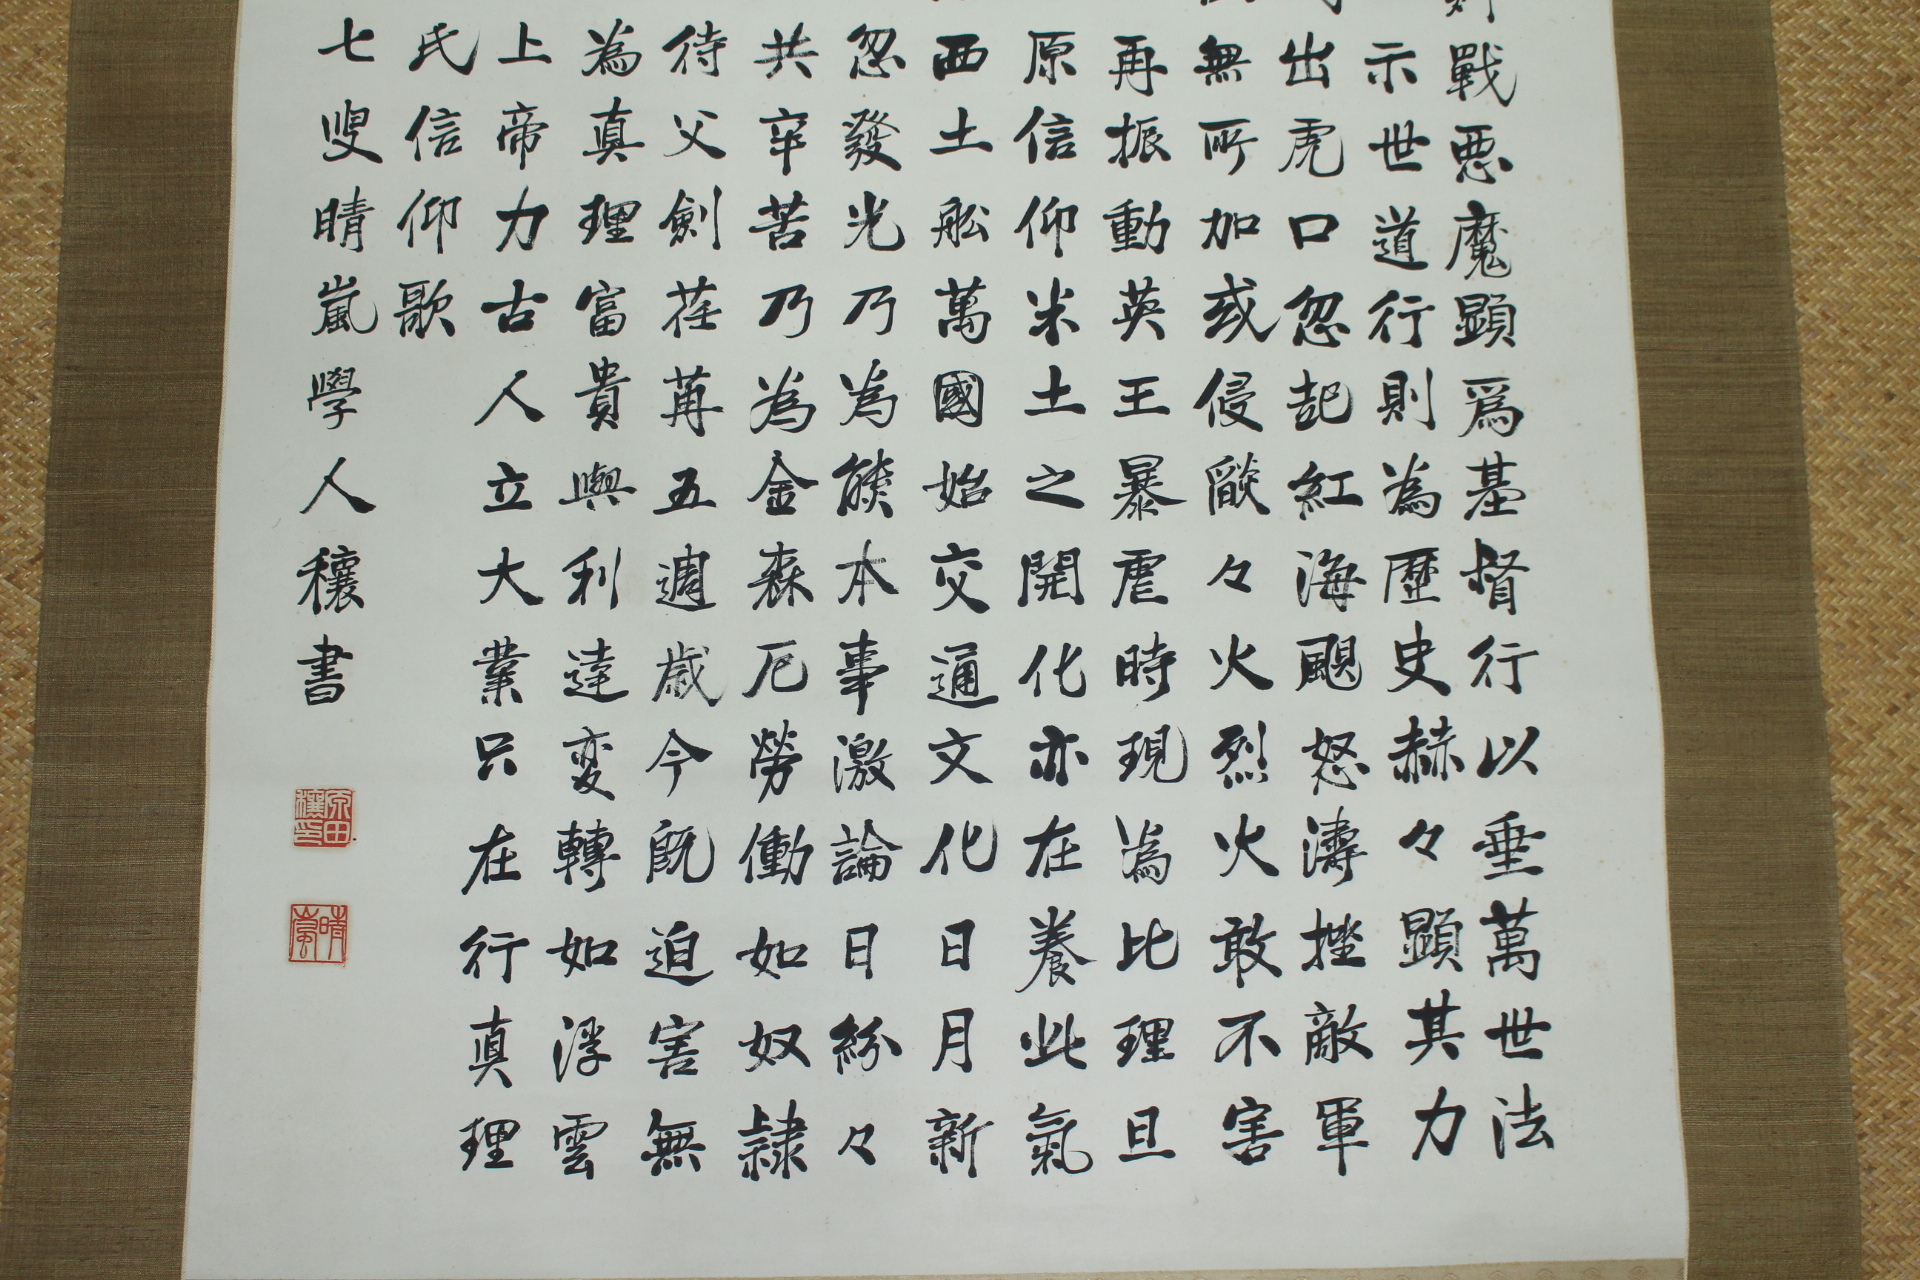 戰悪魔顕爲基督行以垂萬世法
示世道行則為歴史赫々顕其力
出虎口忽起紅海颶怒濤挫敵軍
無所加或侵燄々火烈火敢不害
再振動英王暴虐時現為比理旦
原信仰米土之開化亦在養此氣
西土舩萬國始交通文化日月新
忽發光乃為熊本事激論日紛々
共辛苦乃為金森厄勞働如奴隷
待父劍荏苒五週歳今既迫害無
為真理富貴與利達変轉如浮雲
上帝力古人立大業只在行真理
氏信仰歌
七叟晴嵐學人穰書
原田穰印
晴嵐